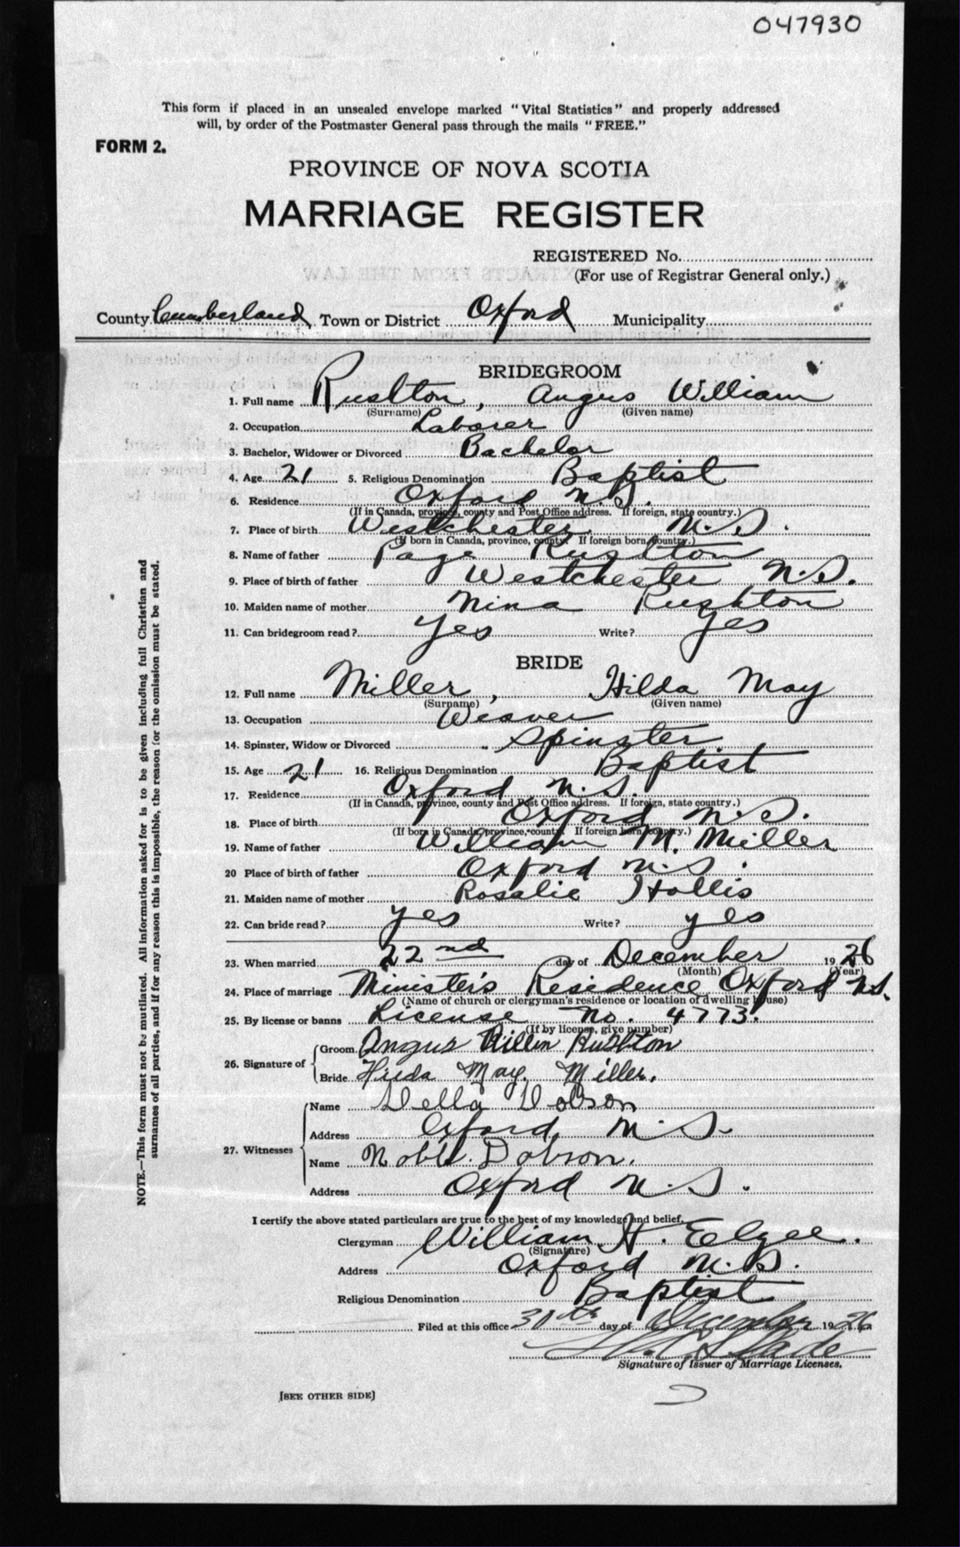 047930
This form if placed in an unsealed envelope marked "Vital Statistics" and properly addressed
will, by order of the Postmaster General pass through the mails "FREE."
FORM 2.
PROVINCE OF NOVA SCOTIA
MARRIAGE REGISTER
REGISTERED No.
(For use of Registrar General only.)
County Cumberland Town or District Oxford Municipality
BRIDEGROOM
1. Full name Rushton, Angus William
(Surname) (Given name)
2. Occupation Laborer
3. Bachelor, Widower or Divorced Bachelor
4. Age 21 5. Religious Denomination Baptist
6. Residence Oxford N.S.
(If in Canada, province, county and Post Office address. If foreign, state country.)
7. Place of birth Westchester N.S.
(If born in Canada, province, county. If foreign born, country.)
8. Name of father Page Rushton
9. Place of birth of father Westchester N.S.
10. Maiden name of mother Nina Rushton
11. Can bridegroom read? Yes Write? Yes
BRIDE
12. Full name Miller, Hilda May
(Surname) (Given name)
13. Occupation Weaver
14. Spinster, Widow or Divorced Spinster
15. Age 21 16. Religious Denomination Baptist
17. Residence Oxford N.S.
(If in Canada, province, county and Post Office address. If foreign, state country.)
18. Place of birth Oxford N.S.
(If born in Canada, province, county. If foreign born country.)
19. Name of father William M. Miller
20 Place of birth of father Oxford N.S.
21. Maiden name of mother Rosalie Hollis
22. Can bride read? yes Write? yes
23. When married 22nd day of December 1926
(Month) (Year)
24. Place of marriage Minister's Residence Oxford N.S.
(Name of church or clergyman's residence or location of dwelling house)
25. By license or banns License No. 4773.
(If by license, give number)
26. Signature of Groom Angus Rushton
Bride May Miller.
27. Witnesses
Name Dobson
Address Oxford, N.S.
Name Noble Dobson.
Address Oxford N.S.
I certify the above stated particulars are true to the best of my knowledge and belief,
Clergyman William H. Elgee.
(Signature)
Address Oxford N.S.
Religious Denomination Baptist
Filed at this office 30th day of December 1926
Signature of Issuer of Marriage Licenses.
[SEE OTHER SIDE]
NOTE.—This form must not be mutilated. All information asked for is to be given including full Christian and
surnames of all parties, and if for any reason this is impossible, the reason for the omission must be stated.